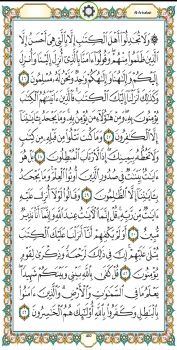 Al-Ankabut
۞ وَلَا تُجَٰدِلُوٓا۟ أَهْلَ ٱلْكِتَٰبِ إِلَّا بِٱلَّتِى هِىَ أَحْسَنُ إِلَّا
ٱلَّذِينَ ظَلَمُوا۟ مِنْهُمْ ۖ وَقُولُوٓا۟ ءَامَنَّا بِٱلَّذِىٓ أُنزِلَ إِلَيْنَا وَأُنزِلَ
إِلَيْكُمْ وَإِلَٰهُنَا وَإِلَٰهُكُمْ وَٰحِدٌ وَنَحْنُ لَهُۥ مُسْلِمُونَ ٤٦
وَكَذَٰلِكَ أَنزَلْنَآ إِلَيْكَ ٱلْكِتَٰبَ ۚ فَٱلَّذِينَ ءَاتَيْنَٰهُمُ ٱلْكِتَٰبَ
يُؤْمِنُونَ بِهِۦ ۖ وَمِنْ هَٰٓؤُلَآءِ مَن يُؤْمِنُ بِهِۦ ۚ وَمَا يَجْحَدُ بِـَٔايَٰتِنَآ
إِلَّا ٱلْكَٰفِرُونَ ٤٧ وَمَا كُنتَ تَتْلُوا۟ مِن قَبْلِهِۦ مِن كِتَٰبٍ
وَلَا تَخُطُّهُۥ بِيَمِينِكَ ۖ إِذًا لَّٱرْتَابَ ٱلْمُبْطِلُونَ ٤٨ بَلْ هُوَ
ءَايَٰتٌۢ بَيِّنَٰتٌ فِى صُدُورِ ٱلَّذِينَ أُوتُوا۟ ٱلْعِلْمَ ۚ وَمَا يَجْحَدُ
بِـَٔايَٰتِنَآ إِلَّا ٱلظَّٰلِمُونَ ٤٩ وَقَالُوا۟ لَوْلَآ أُنزِلَ عَلَيْهِ
ءَايَٰتٌ مِّن رَّبِّهِۦ ۖ قُلْ إِنَّمَا ٱلْـَٔايَٰتُ عِندَ ٱللَّهِ وَإِنَّمَآ أَنَا۠ نَذِيرٌ
مُّبِينٌ ٥٠ أَوَلَمْ يَكْفِهِمْ أَنَّآ أَنزَلْنَا عَلَيْكَ ٱلْكِتَٰبَ
يُتْلَىٰ عَلَيْهِمْ ۚ إِنَّ فِى ذَٰلِكَ لَرَحْمَةً وَذِكْرَىٰ لِقَوْمٍ
يُؤْمِنُونَ ٥١ قُلْ كَفَىٰ بِٱللَّهِ بَيْنِى وَبَيْنَكُمْ شَهِيدًا ۖ
يَعْلَمُ مَا فِى ٱلسَّمَٰوَٰتِ وَٱلْأَرْضِ ۗ وَٱلَّذِينَ ءَامَنُوا۟
بِٱلْبَٰطِلِ وَكَفَرُوا۟ بِٱللَّهِ أُو۟لَٰٓئِكَ هُمُ ٱلْخَٰسِرُونَ ٥٢